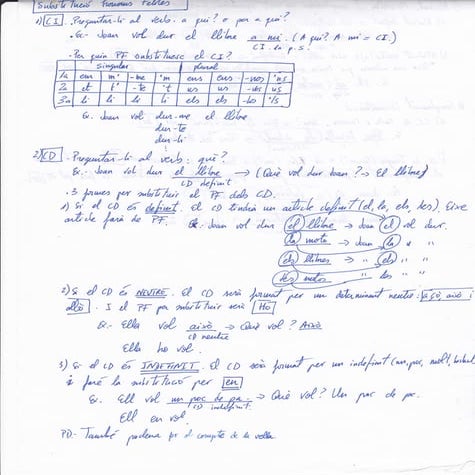 Substitució Pronoms Febles
1) CI. Preguntar-li al verb: a qui? o per a qui?
Ex: Joan vol dur el llibre a mi. (A qui? A mi = CI.)
CI. 1a p.s.
· Per quin PF substituesc el CI?
singular plural
1a em m' -me 'm ens ens -nos 'ns
2a et t' -te 't us us -vos us
3a li li li li els els -los 'ls
Ex. Joan vol dur-me el llibre
dur-te
dur-li
2) CD - Preguntar-li al verb: què?
Ex: Joan vol dur el llibre → (Què vol dur Joan? → El llibre)
CD definit
· 3 formes per substituir el PF dels CD.
1) Si el CD és definit. El CD tindrà un article definit (el, la, els, les). Eixe
article farà de PF. Ex. Joan vol dur el llibre → Joan el vol dur.
la moto → Joan la " "
els llibres → " els " "
les motos " les " "
2) Si el CD és NEUTRE. El CD serà format per un determinant neutre: açò, això i
allò. I el PF per substituir serà Ho
Ex. Ella vol això → Què vol? Això
CD neutre
Ella ho vol.
3) Si el CD és INDEFINIT. El CD serà format per un indefinit (un, poc, molt,
i faré la substitució per en
Ex. Ell vol un poc de pa. → Què vol? Un poc de pa.
CD indefinit.
Ell en vol.
PD- També podem